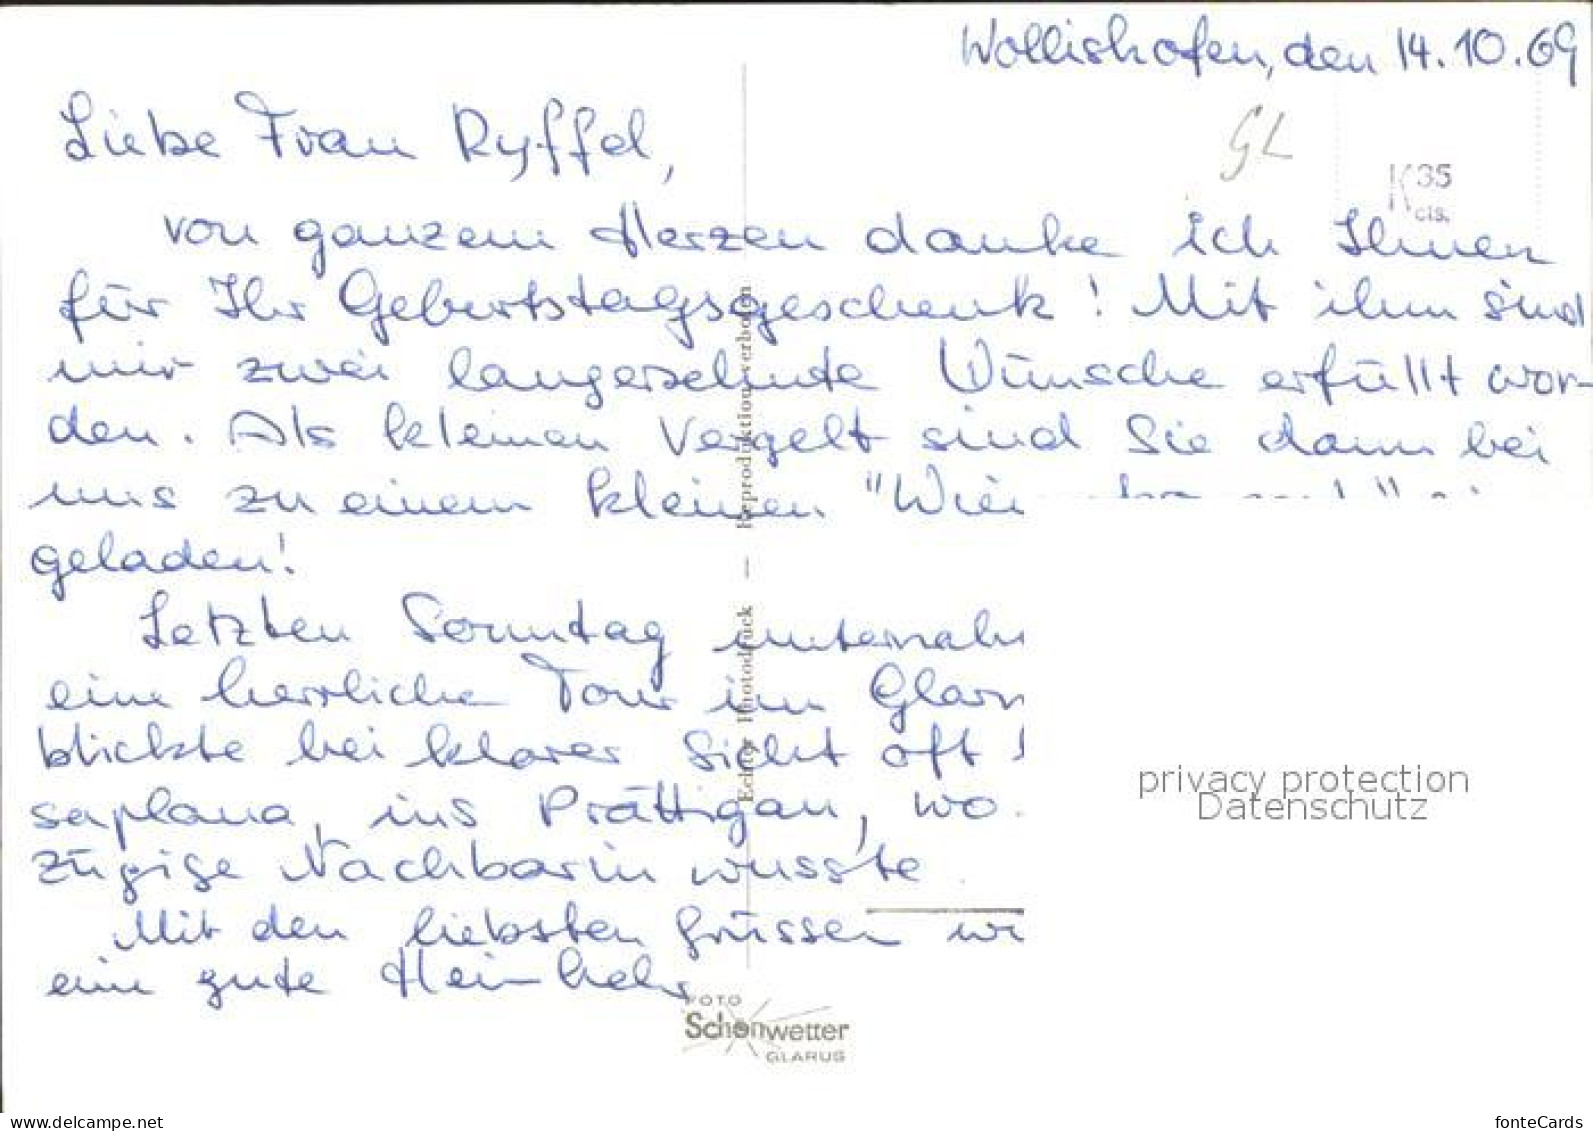 Wollishofen, den 14.10.69
GL
K 35
cts.
Liebe Frau Ryffel,
von ganzem Herzen danke ich Ihnen
für Ihr Geburtstagsgeschenk! Mit ihm sind
mir zwei langersehnte Wünsche erfüllt wor-
den. Als kleinen Vergelt sind Sie dann bei
uns zu einem kleinen "Wie
geladen!
Letzten Sonntag unternah
eine herrliche Tour im Glarn
blickte bei klarer Sicht oft
saplana, ins Prättigau, wo
zügige Nachbarin wusste
Mit den liebsten Grüssen
eine gute Heimkehr
Echter Photodruck — Reproduktion verboten
FOTO
Schönwetter
GLARUS
privacy protection
Datenschutz
www.delcampe.net
fonteCards